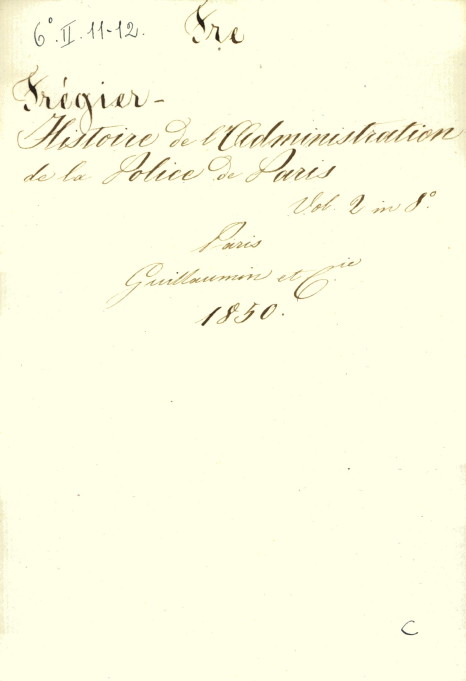 6°. II. 11-12.
Fre
Frégier-
Histoire de l'Administration
de la Police de Paris
Vol. 2 in 8°
Paris
Guillaumin et Cie
1850.
C